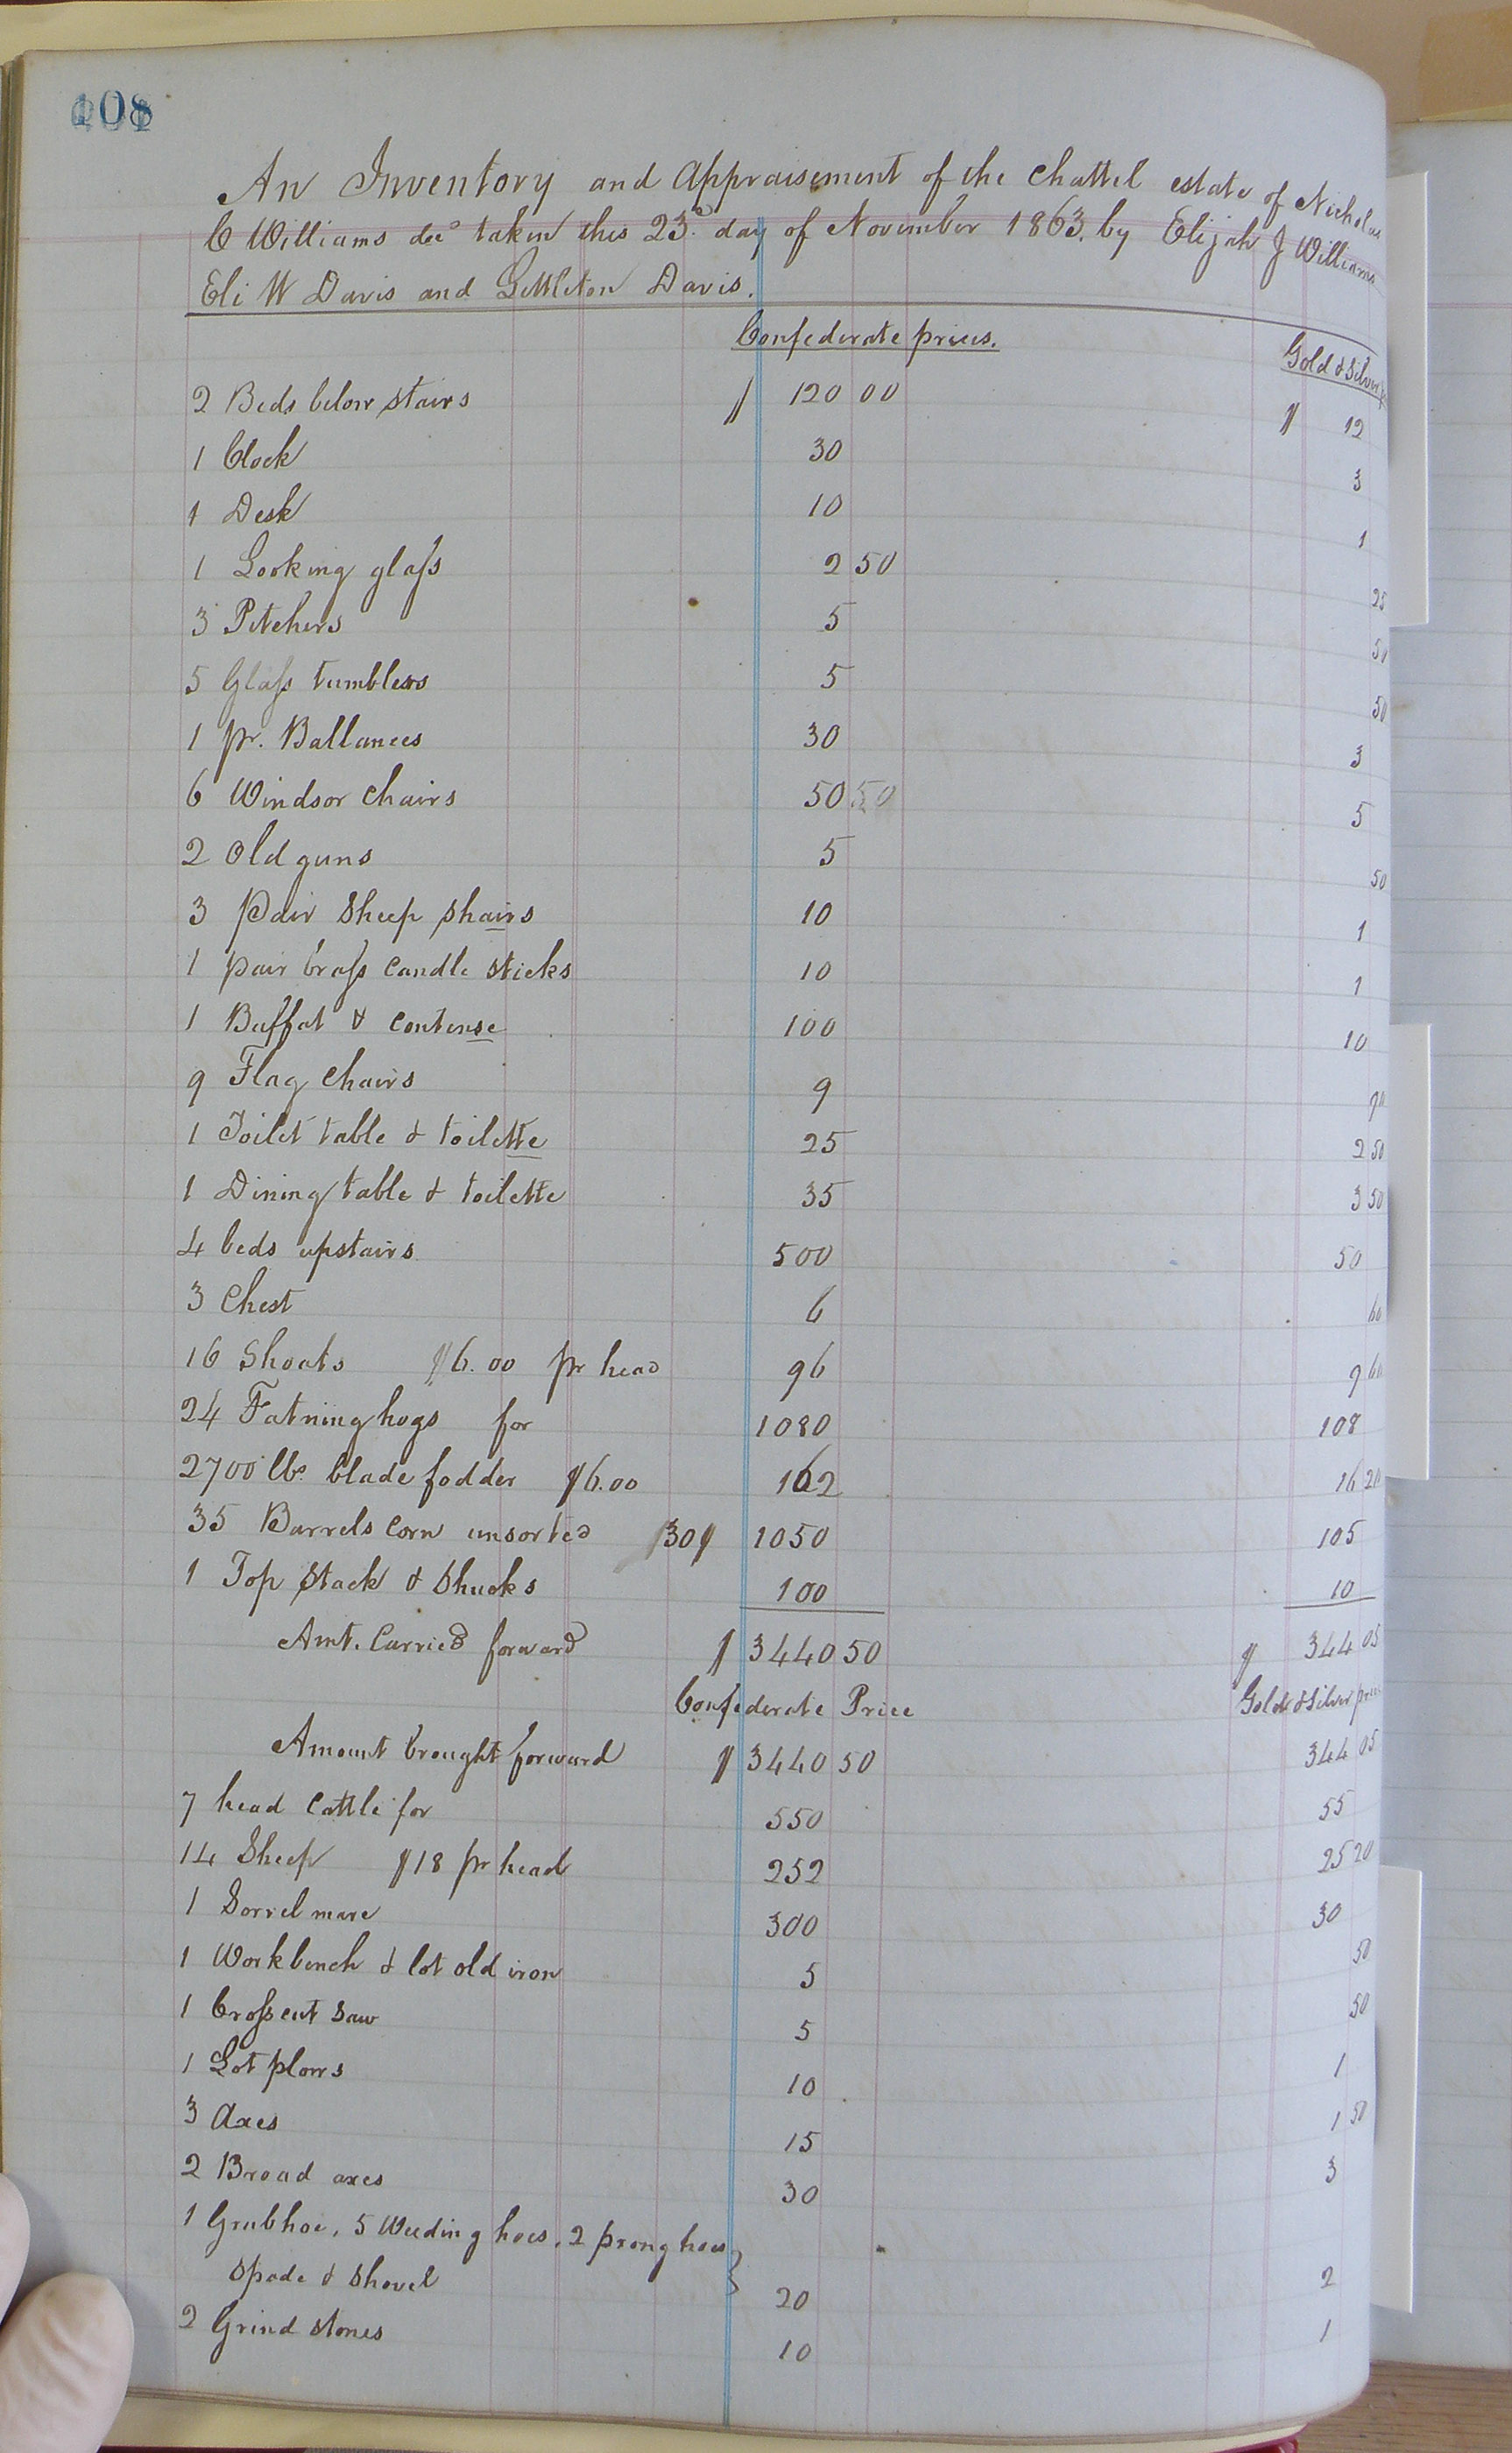 108
An Inventory and Appraisement of the Chattel estate of Nicholas
C Williams decd taken this 23d day of November 1863, by Elijah J Williams
Eli W Davis and Littleton Davis.
Confederate prices. Gold & Silver
2 Beds below stairs $ 120 00 $ 12
1 Clock 30 3
1 Desk 10 1
1 Looking glass 2 50 25
3 Pitchers 5 50
5 Glass tumblers 5 50
1 pr. Ballances 30 3
6 Windsor Chairs 50 50 5
2 Old guns 5 50
3 Pair Sheep shairs 10 1
1 pair brass Candle sticks 10 1
1 Buffat & Contense 100 10
9 Flag Chairs 9 90
1 Toilet table & toilette 25 2 50
1 Dining table & toilette 35 3 50
4 beds upstairs 500 50
3 Chest 6 60
16 Shoats $6.00 pr head 96 9 60
24 Fatning hogs for 1080 108
2700 lbs blade fodder $6.00 162 16 20
35 Barrels Corn unsorted 30$ 1050 105
1 Top Stack & Shucks 100 10
Amt. Carried forward $ 3440 50 $ 344 05
Confederate Price Gold & Silver price
Amount brought forward $ 3440 50 344 05
7 head Cattle for 550 55
14 Sheep $18 pr head 252 25 20
1 Sorrel mare 300 30
1 Workbench & lot old iron 5 50
1 Crosscut Saw 5 50
1 Lot plows 10 1
3 Axes 15 1 50
2 Broad axes 30 3
1 Grubhoe, 5 Weeding hoes, 2 prong hoes
Spade & Shovel 20 2
2 Grind stones 10 1